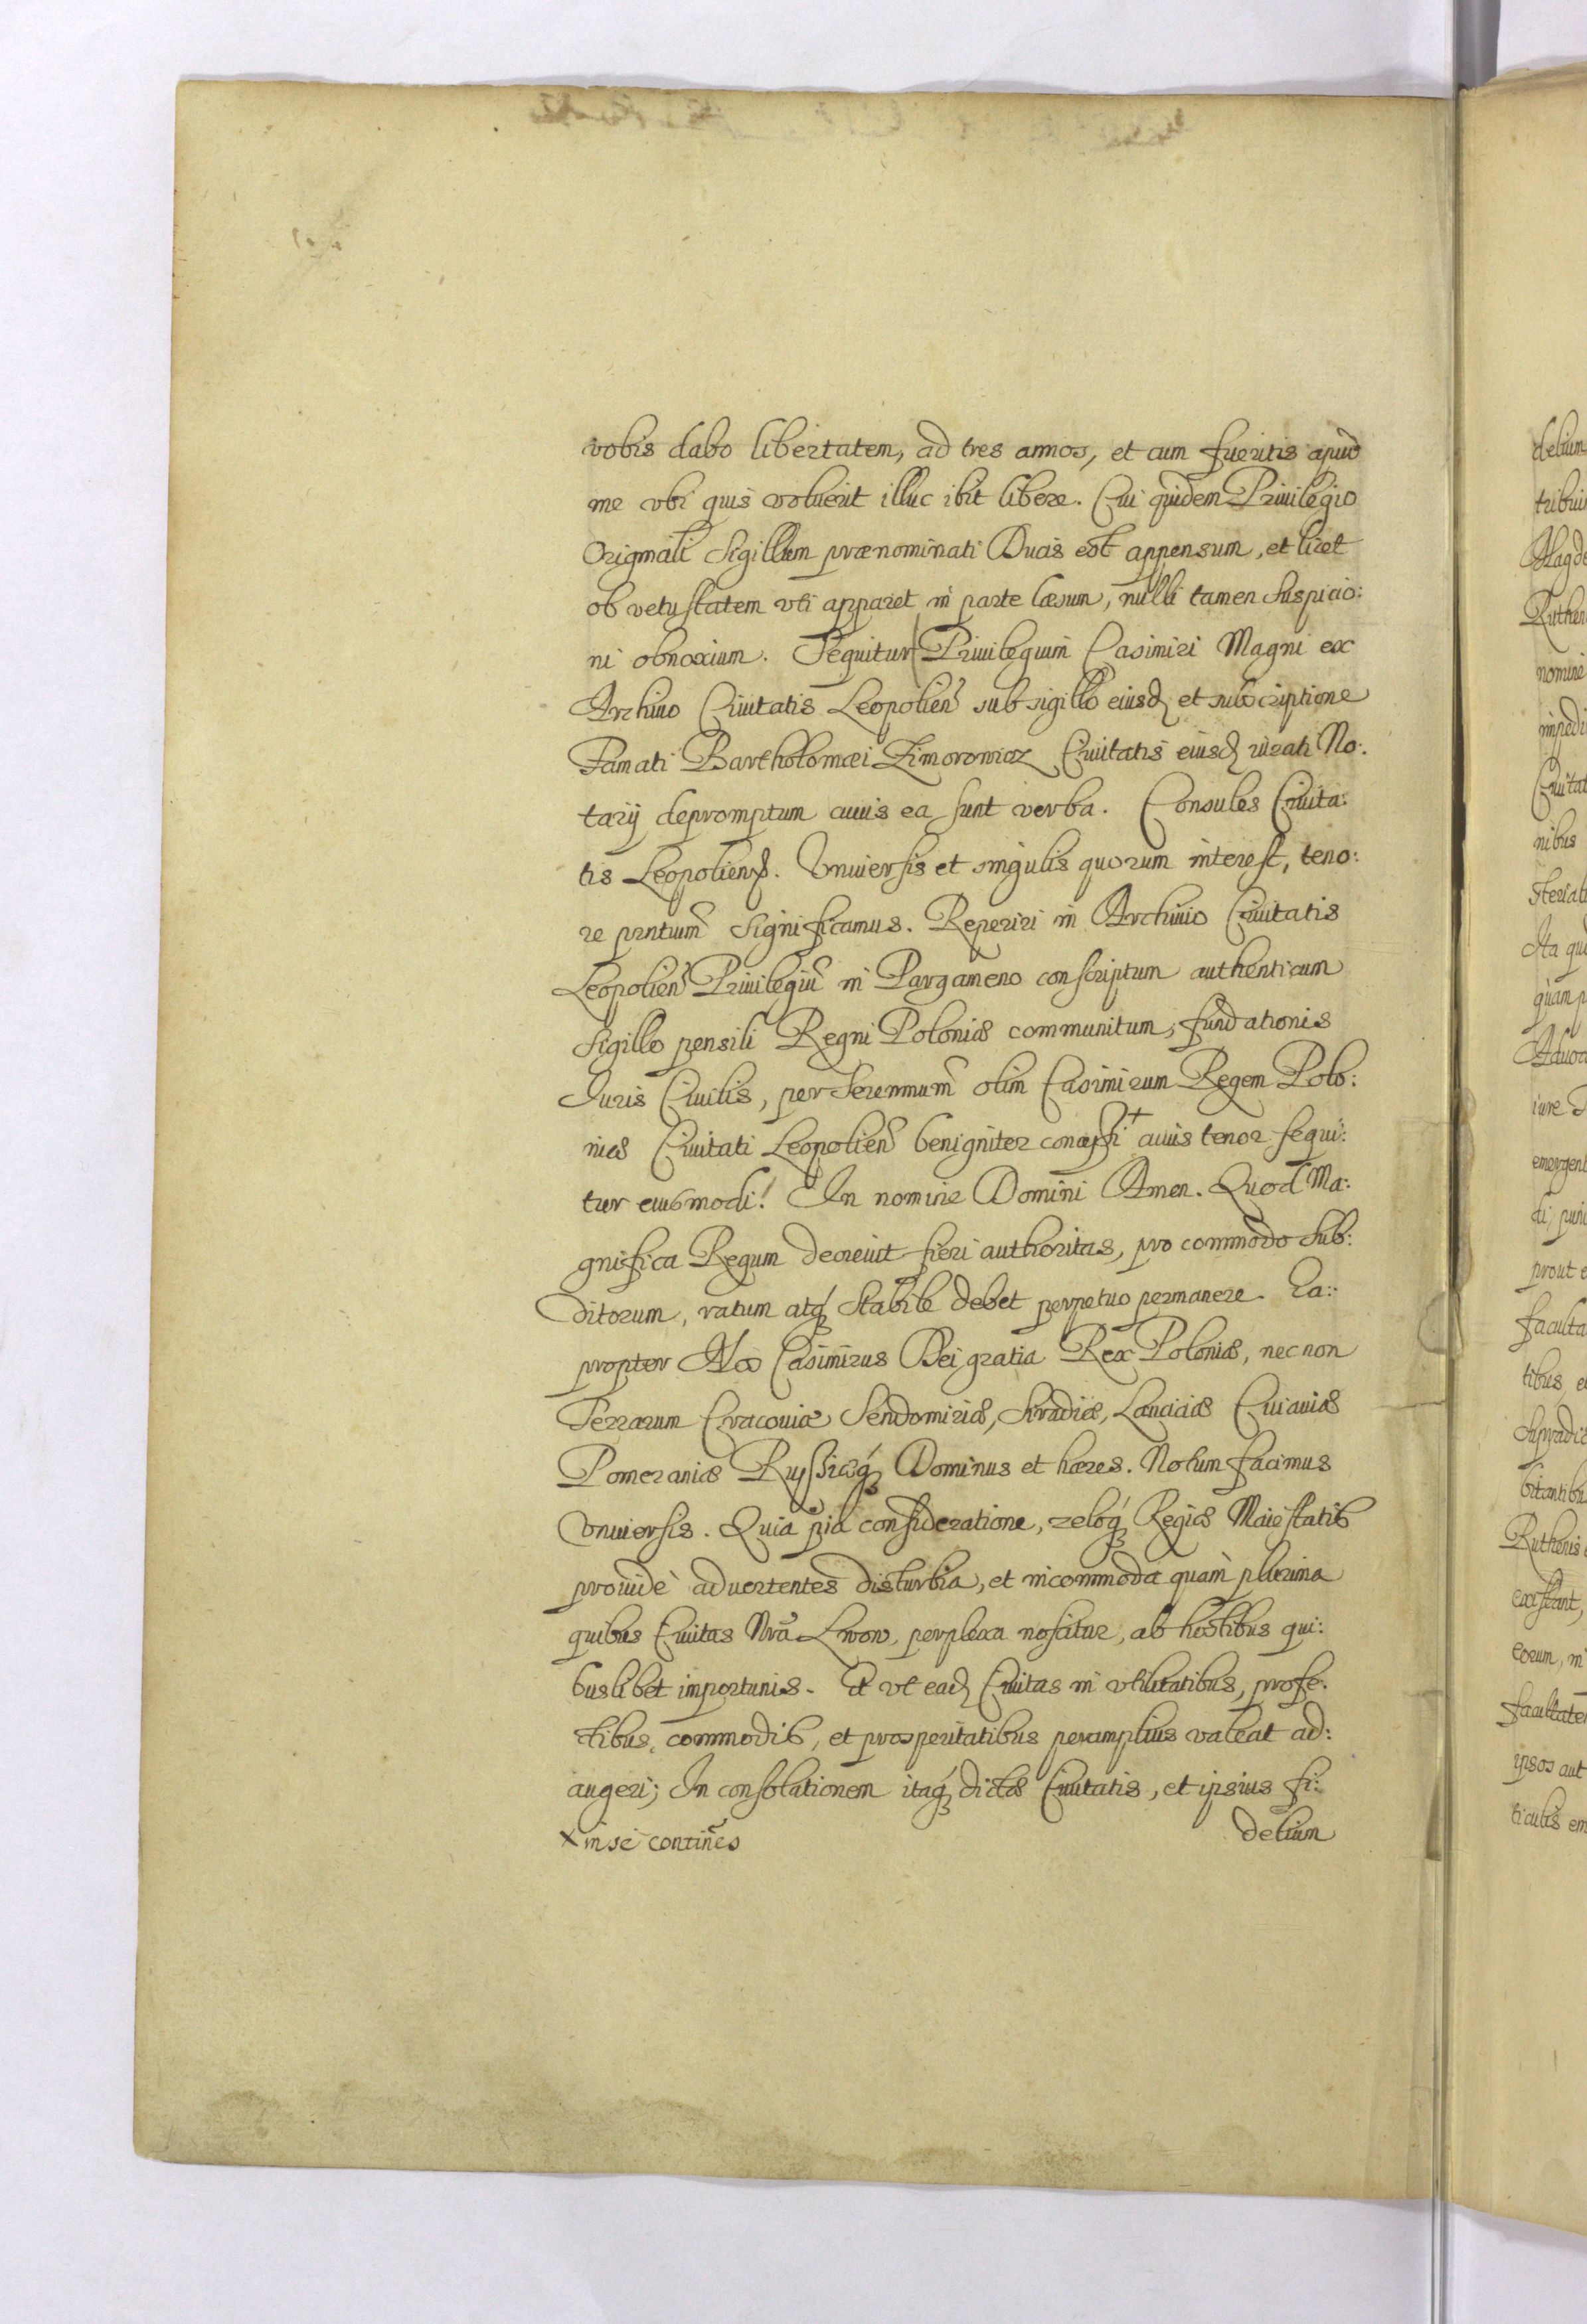 vobis dabo libertatem, ad tres annos, et cum fueritis apud
me vbi quis voluerit illuc ibit libere. Cui quidem Priuilegio
Originali Sigillum prænominati Ducis est appensum, et licet
ob vetustatem vti apparet in parte læsum, nulli tamen suspicio:
ni obnoxium. Sequitur Priuilegium Casimiri Magni ex
Archiuo Ciuitatis Leopolien̄ sub sigillo eiusd et subscriptione
Famati Bartholomæi Zimorowicz Ciuitatis eiusd iurati No:
tarij depromptum cuius ea sunt verba. Consules Ciuita:
tis Leopolien̄. Vniuersis et singulis quorum interest, teno:
re prntium̄ significamus. Reperiri in Archiuio Ciuitatis
Leopolien̄ Priuilegiū in Pargameno conscriptum authenticum
Sigillo pensili Regni Poloniæ communitum, fundationis
Iuris Ciuilis, per Serenmum̄ olim Casimirum Regem Polo:
niæ Ciuitati Leopolien̄ benigniter concessi + cuius tenor sequi:
tur eiusmodi! In nomine Domini Amen. Quod Ma:
gnifica Regum decreuit fieri authoritas, pro commodo Sub:
ditorum, ratum atq́ʒ stabile debet perpetuo permanere. Ea:
propter Nos Casimirus Dei gratia Rex Poloniæ, nec non
Terrarum Cracouiæ Sendomiriæ, Siradiæ, Lanciciæ Cuiauiæ
Pomeraniæ Russiæq́ʒ Dominus et hæres. Notum facimus
Vniuersis. Quia pia consideratione, zeloq́ʒ Regiæ Maiestatis
prouidè aduertentes disturbia, et incommoda quàm plurima
quibus Ciuitas Nrā Lwow, perplexa noscitur, ab hostibus qui:
buslibet importunis. Et vt ead Ciuitas in vtilitatibus, profe:
ctibus, commodis, et prosperitatibus peramplius valeat ad:
augeri; In consolationem itaq́ʒ dictæ Ciuitatis, et ipsius fi:
delium
x in se contin̄es